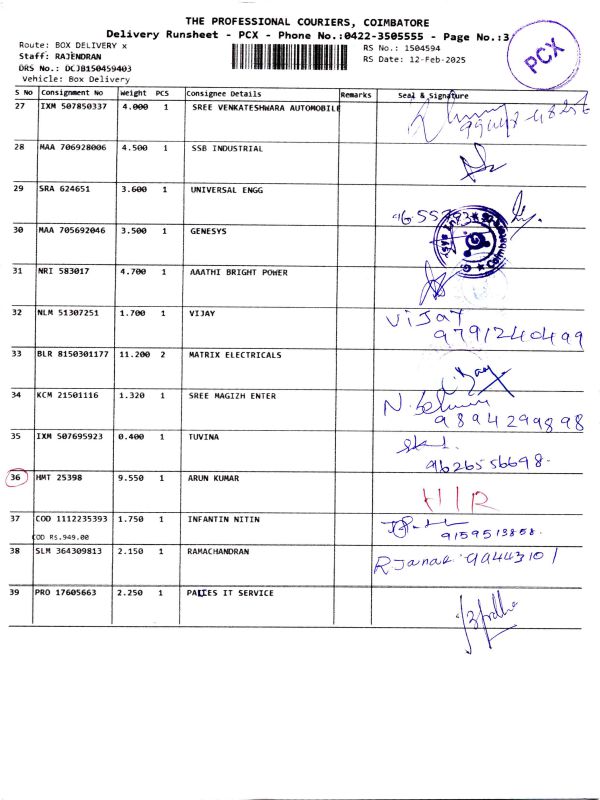 THE PROFESSIONAL COURIERS, COIMBATORE
Delivery Runsheet - PCX - Phone No.:0422-3505555 - Page No.:3
Route: BOX DELIVERY x
RS No.: 1504594
Staff: RAJENDRAN
RS Date: 12-Feb-2025
DRS No.: DCJB150459403
Vehicle: Box Delivery
PCX
S No Consignment No Weight PCS Consignee Details Remarks Seal & Signature
27 IXM 507850337 4.000 1 SREE VENKATESHWARA AUTOMOBILE
28 MAA 706928006 4.500 1 SSB INDUSTRIAL
29 SRA 624651 3.600 1 UNIVERSAL ENGG
30 MAA 705692046 3.500 1 GENESYS
31 NRI 583017 4.700 1 AAATHI BRIGHT POWER
32 NLM 51307251 1.700 1 VIJAY VIJAY
9791240499
33 BLR 8150301177 11.200 2 MATRIX ELECTRICALS
34 KCM 21501116 1.320 1 SREE MAGIZH ENTER
9894299898
35 IXM 507695923 0.400 1 TUVINA
9626556698.
36 HMT 25398 9.550 1 ARUN KUMAR HIR
37 COD 1112235393 1.750 1 INFANTIN NITIN
COD RS.949.00 9159513858.
38 SLM 364309813 2.150 1 RAMACHANDRAN
39 PRO 17605663 2.250 1 PALLES IT SERVICE